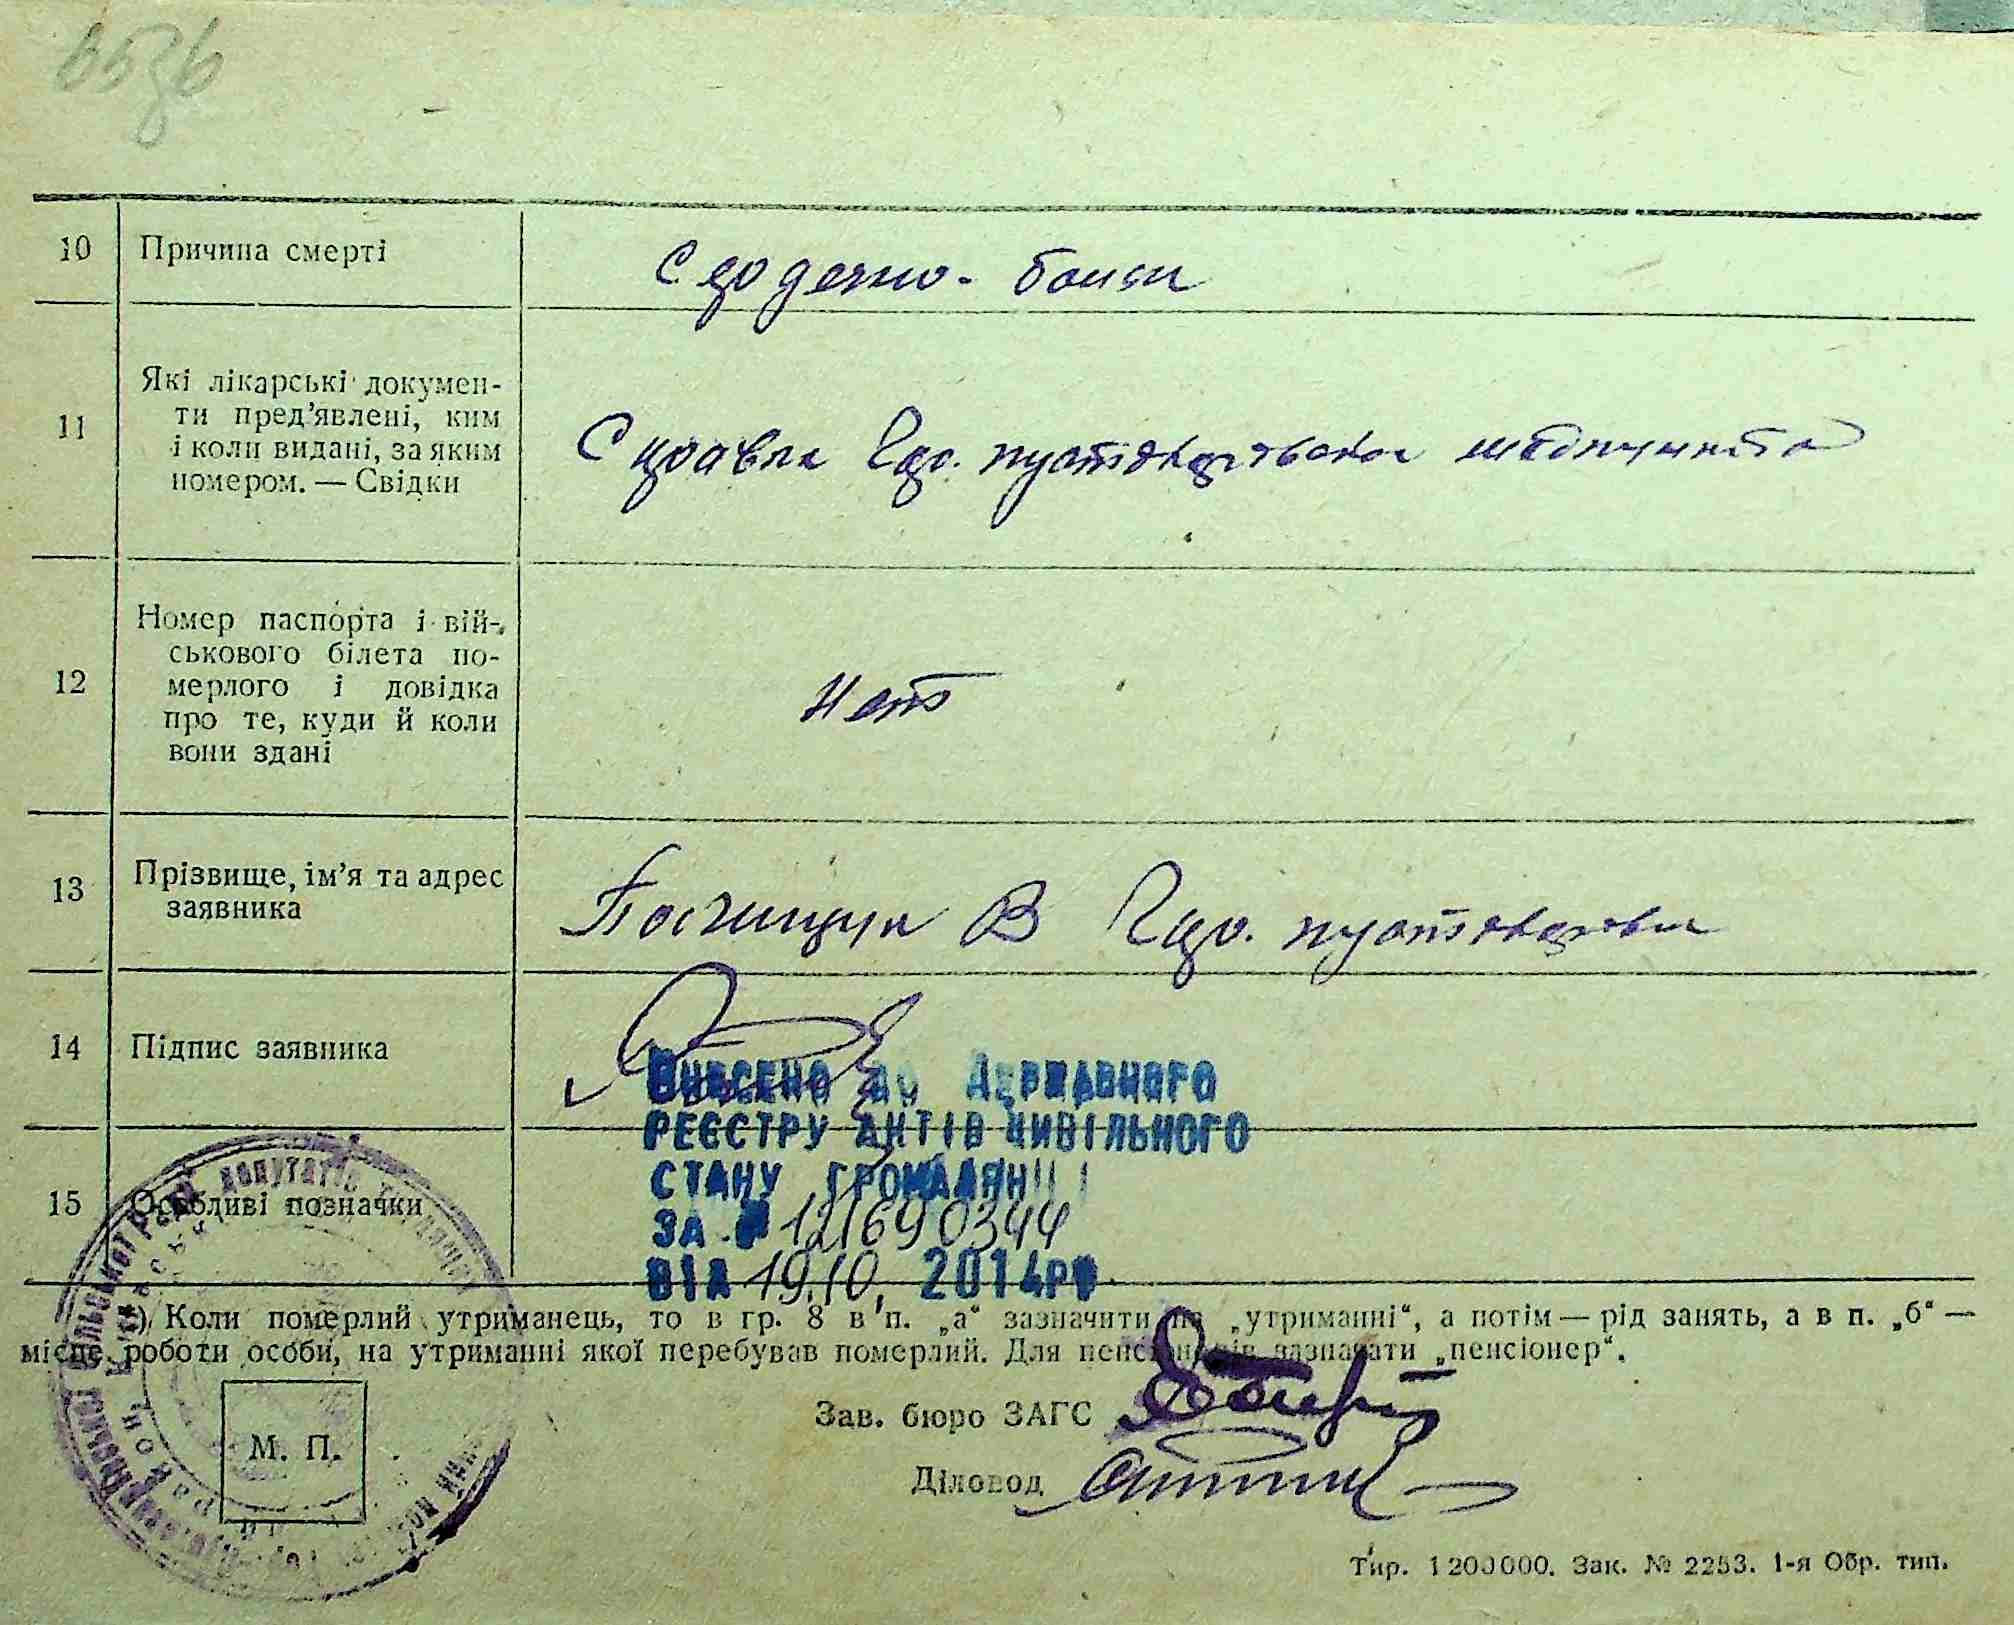 10 Причина смерті
Сердечно-
11 Які лікарські докумен-
ти пред’явлені, ким
і коли видані, за яким
номером. — Свідки
Справка Гор.
12 Номер паспорта і вій-
ськового білета по-
мерлого і довідка
про те, куди й коли
вони здані
Нет
13 Прізвище, ім’я та адрес
заявника
В Гор.
14 Підпис заявника
ВНЕСЕНО ДО ДЕРЖАВНОГО
РЕЄСТРУ АКТІВ ЦИВІЛЬНОГО
СТАНУ ГРОМАДЯН
15 Особливі позначки
ЗА № 12690344
ВІД 19.10, 2014р.
) Коли померлий утриманець, то в гр. 8 в п. „а“ зазначити на „утриманні“, а потім — рід занять, а в п. „б“ —
місце роботи особи, на утриманні якої перебував померлий. Для пенсіонерів зазначати „пенсіонер“.
Зав. бюро ЗАГС
М. П.
Діловод
Тир. 1200000. Зак. № 2253. 1-я Обр. тип.